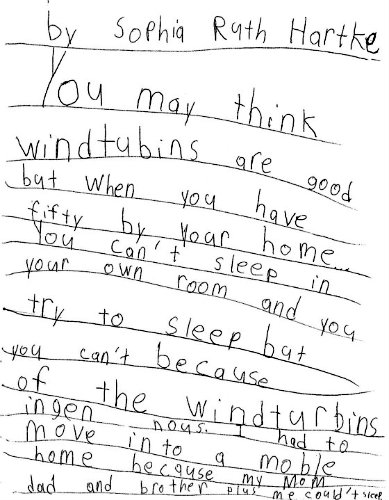 by Sophia Ruth Hartke
You may think
windtubins are good
but when you have
fifty by your home...
You can't sleep in
your own room and you
try to sleep but
you can't because
of the windturbins
ingen nous. I had to
move in to a moble
home because my mom
dad and brother plus me could't sleep